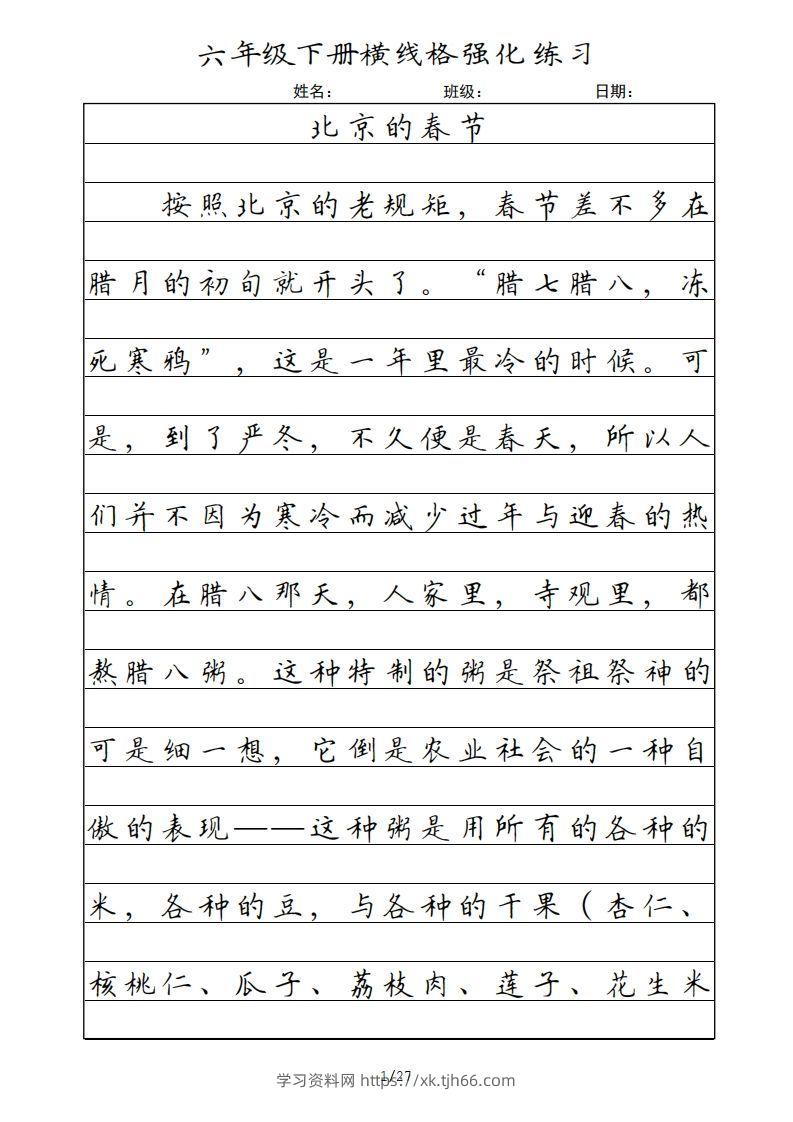 六年级下册横线格强化练习
姓名： 班级： 日期：
北京的春节
按照北京的老规矩，春节差不多在
腊月的初旬就开头了。“腊七腊八，冻
死寒鸦”，这是一年里最冷的时候。可
是，到了严冬，不久便是春天，所以人
们并不因为寒冷而减少过年与迎春的热
情。在腊八那天，人家里，寺观里，都
熬腊八粥。这种特制的粥是祭祖祭神的
可是细一想，它倒是农业社会的一种自
傲的表现——这种粥是用所有的各种的
米，各种的豆，与各种的干果（杏仁、
核桃仁、瓜子、荔枝肉、莲子、花生米
1/27
学习资料网 https://xk.tjh66.com